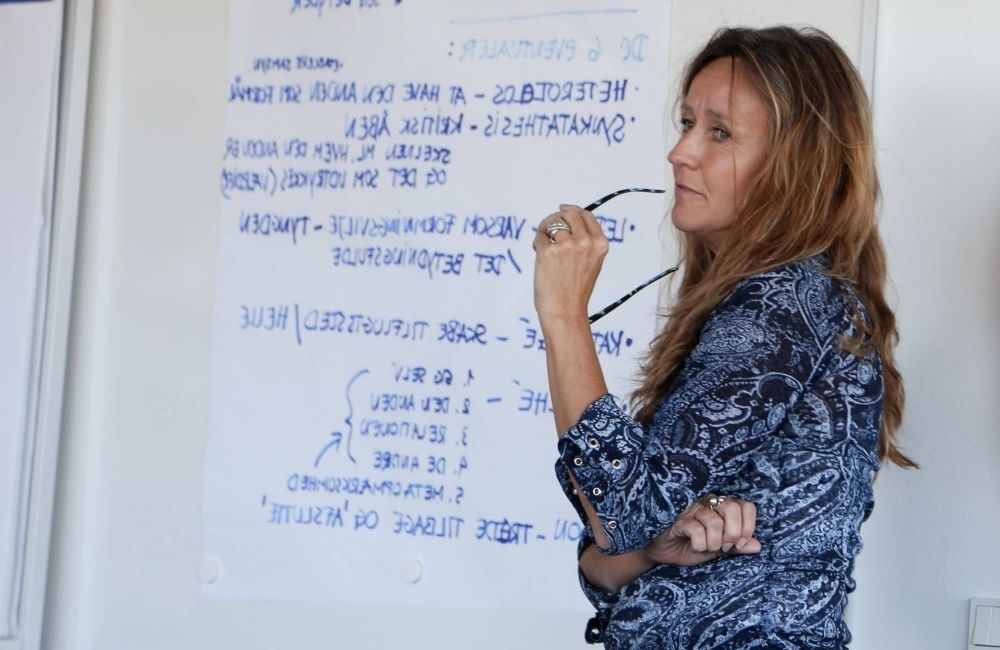 DE 6 EVENTUALER:
· HETEROTELOS - AT HAVE DEN ANDEN SOM FORMÅL
· SYNKATATHESIS - KRITISK ÅBEN
SKELNEN ML. HVEM DEN ANDEN ER
OG DET SOM UDTRYKKES (VÆRDIER)
- VARSOM FORMNINGSVILJE - TYNGDEN
/DET BETYDNINGSFULDE
- SKABE TILFLUGTSSTED/HELLE
1. SELV
2. DEN ANDEN
3. RELATIONEN
4. DE ANDRE
5. METAOPMÆRKSOMHED
- TRÆDE TILBAGE OG 'AFSLUTTE'